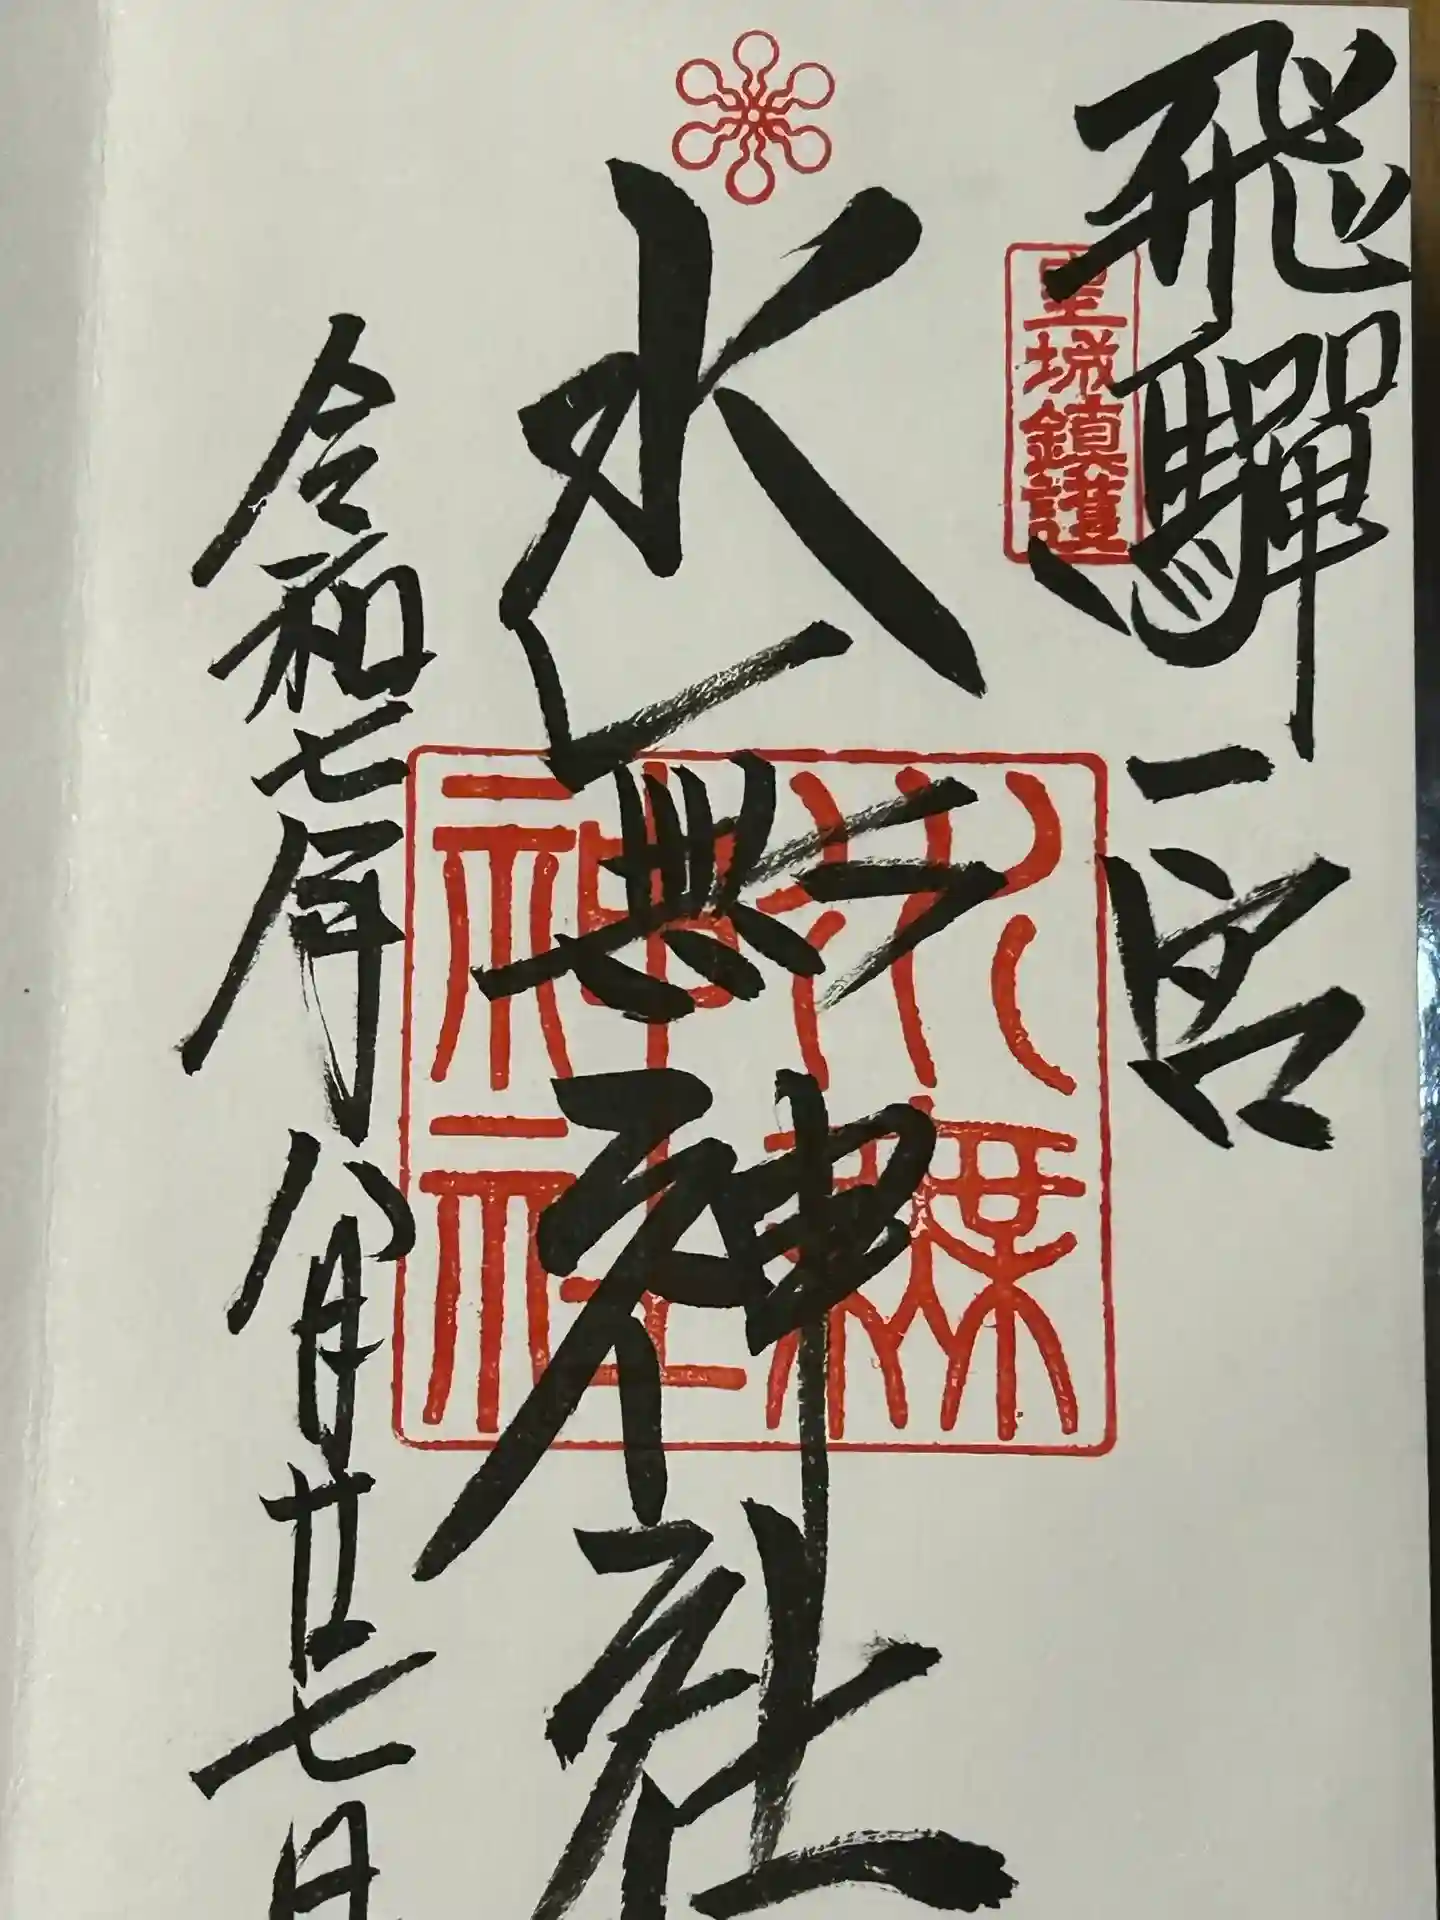 飛騨一宮
聖城鎮護
水無神社
水無神社
令和七年八月廿七日